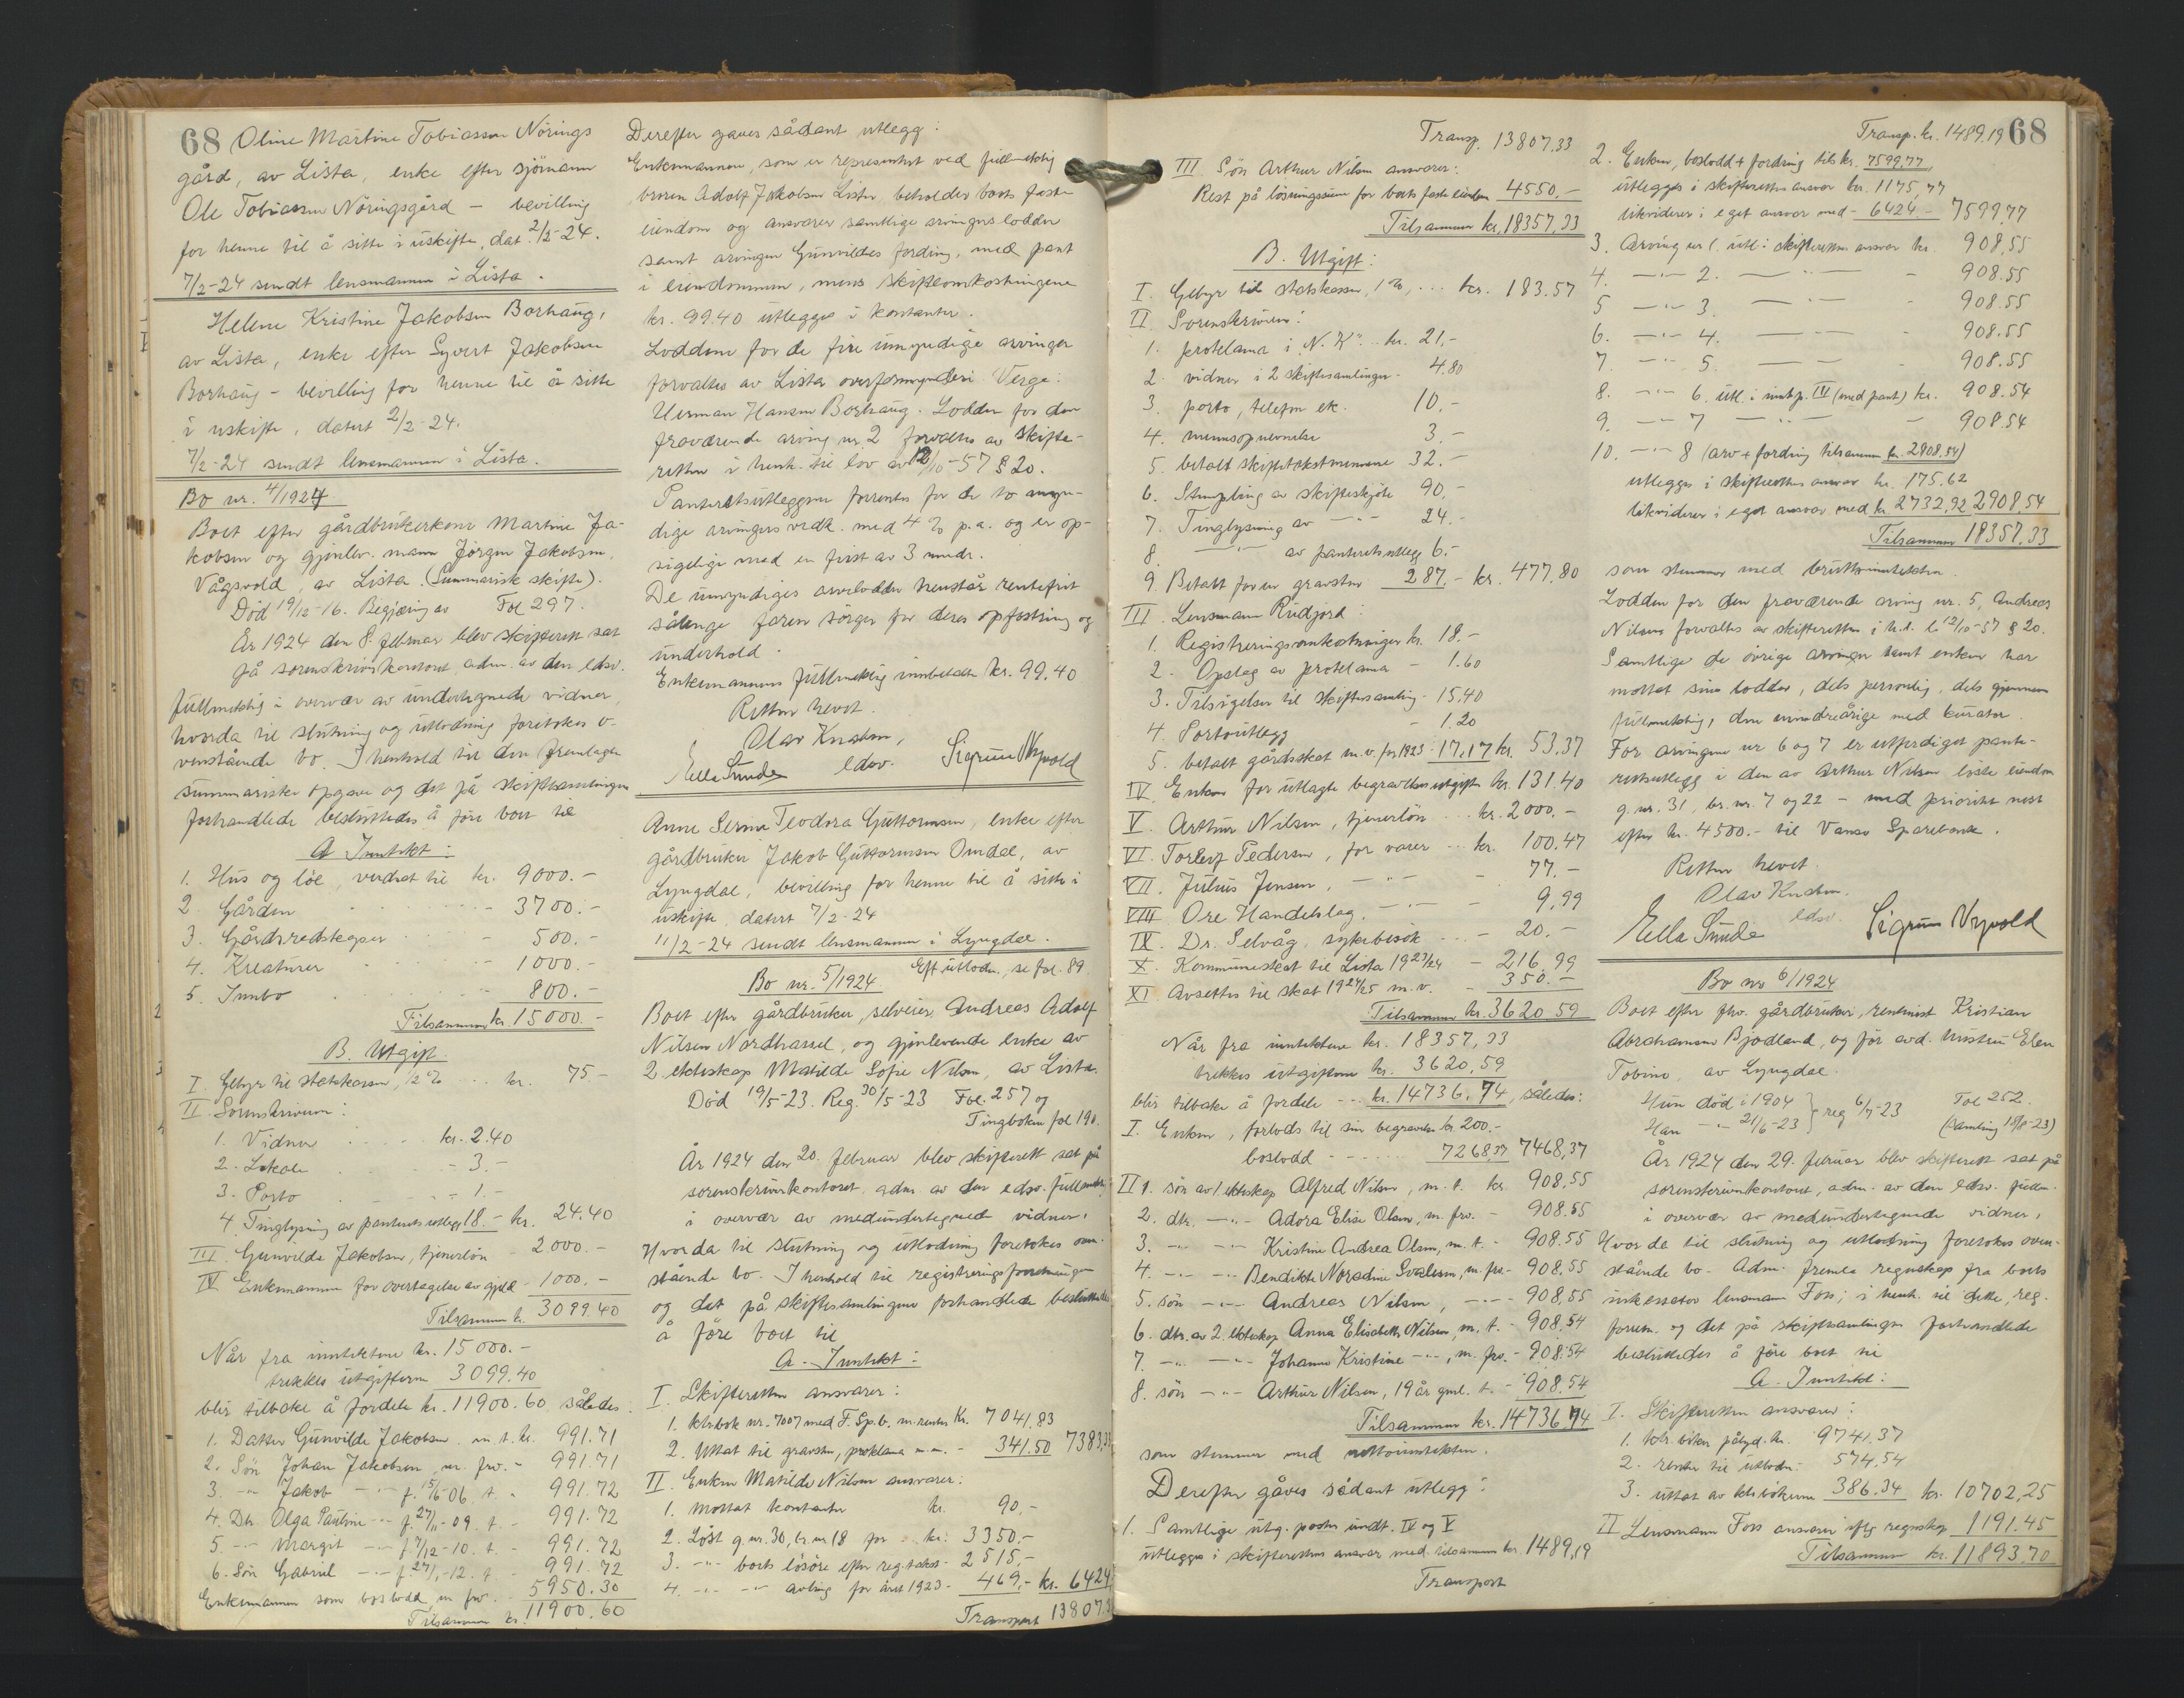 68 Oline Martine Tobiassen Nörings
gård, av Lista, enke efter sjömann
Ole Tobiassen Nöringsgård - bevilling
for henne til å sitte i uskifte, dat. 2/2-24.
7/2-24 sendt lensmannen i Lista.
Helene Kristine Jakobsen Borhaug,
av Lista, enke efter Syvert Jakobsen
Borhaug - bevilling for henne til å sitte
i uskifte, datert 2/2-24.
7/2-24 sendt lensmannen i Lista.
Bo nr. 4/1924
Boet efter gårdbrukerkone Martine Ja-
kobsen og gjenlev. mann Jörgen Jakobsen,
Vågsvold, av Lista. (Summarisk skifte).
Död 19/12-16. Begjæring av Fol 297.
År 1924 den 8. februar blev skifterett sat
på sorenskriverkontoret adm. av den edsv.
fullmektig i overvær av undertegnede vidner,
hvorda til slutning og utlodning foretokes o-
venstående bo. I henhold til den fremlagte
summariske opgave og det på skiftesamlingen
forhandlede besluttedes å före boet til
A Inntekt:
1. Hus og löe, verdsat til kr. 9000.-
2. Gården - 3700.-
3. Gårdsredskaper - 500.-
4. Kreaturer - 1000.-
5. Innbo - 800.-
Tilsammen kr. 15000.-
B. Utgift
I. Gebyr til statskassen, 1/2 % kr. 75.-
II. Sorenskriveren:
1. Vidner kr. 2.40
2. Lokale - 3.-
3. Porto - 1.-
4. Tinglysning av panteretsutlegg 18.- kr. 24.40
III. Gunvilde Jakobsen, tjenerlön - 2000.-
IV Enkemannen for overtagelse av gjeld - 1000.-
Tilsammen kr. 3099.40
Når fra inntektene kr. 15000.-
trekkes utgiftene 3099.40
blir tilbake å fordele kr. 11900.60, således:
1. Datter Gunvilde Jakobsen m. t. kr. 991.71
2. Sön Johan Jakobsen, m. frv. - 991.71
3. -"- Jakob -"- f. 15/6-06. t. - 991.72
4. Dtr. Olga Pauline -"- f. 27/11-09. t. - 991.72
5. -"- Margit -"- f. 7/12-10. t. - 991.72
6. Sön Gabriel -"- f. 27/1-12. t. - 991.72
Enkemannen som boslodd, m frv. 5950.30
Tilsammen kr. 11900.60
Derefter gaves sådant utlegg:
Enkemannen, som er representert ved fullmektig
broren Adolf Jakobsen Lista, beholder boets faste
eiendom og ansvarer samtlige arvingers lodder
samt arvingen Gunvildes fordring, med pant
i eiendommen, mens skifteomkostningene
kr. 99.40 utlegges i kontanter.
Loddene for de fire umyndige arvinger
forvaltes av Lista overformynderi. Verge:
Herman Hansen Borhaug. Lodden for den
fraværende arving nr. 2 forvaltes av skifte-
retten i henh. til lov av 12/10-57 § 20.
Panteretsutleggene forrentes for de to myn-
dige arvingers vedk. med 4 % p.a. og er op-
sigelige med en frist av 3 mndr.
De umyndiges arvelodder henstår rentefrit
sålenge faren sörger for deres opfostring og
underhold.
Enkemannens fullmektig innbetalte kr. 99.40
Retten hevet.
Olav Knutsen,
edsv.
Ella Sunde Sigrun Nypvold
Anne Serine Teodora Guttormsen, enke efter
gårdbruker Jakob Guttormsen Omdal, av
Lyngdal, bevilling for henne til å sitte i
uskifte, datert 7/2-24
11/2-24 sendt lensmannen i Lyngdal.
Bo nr. 5/1924 Eft. utlodn., se fol. 89.
Boet efter gårdbruker, selveier, Andreas Adolf
Nilsen Nordhassel, og gjenlevende enke av
2. ekteskap Matilde Sofie Nilsen, av Lista.
Död 19/5-23. Reg. 30/5-23 Fol. 257 og
Tingboken fol 190.
År 1924 den 20. februar blev skifterett sat på
sorenskriverkontoret, adm. av den edsv. fullmektig
i overvær av medundertegnede vidner,
Hvorda til slutning og utlodning foretokes oven-
stående bo. I henhold til registreringsforretningen
og det på skiftesamlingene forhandlede besluttedes
å före boet til
A. Inntekt:
I. Skifteretten ansvarer:
1. ktrbok nr. 7007 med F. Sp.b. m. renter Kr. 7041.83
2. Uttat til gravsten, proklama m.m. - 341.50 7383.33
II. Enken Matilde Nilsen ansvarer:
1. mottat kontanter kr. 90.-
2. Löst g.nr. 30, br. nr 18 for kr. 3350.-
3. -"- boets lösöre efter reg.takst - 2515.-
4. -"- -"- avling for året 1923 - 469.- kr. 6424
Transport 13807.3
Transp. 13807.33
III. Sön Arthur Nilsen ansvarer:
Rest på lösningssum for boets faste eiendom 4550.-
Tilsammen kr. 18357.33
B. Utgift:
I. Gebyr til statskassen, 1 %, ... kr. 183.57
II. Sorenskriveren:
1. proklama i "N. K" .. kr. 21.-
2. vidner i 2 skiftesamlinger - 4.80
3. porto, telefon etc. 10.-
4. mennsopnevnelse 3.-
5. betalt skiftetakstmennene 32.-
6. Stempling av skifteskjöte 90.-
7. Tinglysning av -"- 24.-
8. -"- av panteretsutlegg 6.-
9. Betalt for en gravsten 287.- kr. 477.80
III. Lensmann Rudjord:
1. Registreringsomkostninger kr. 18.-
2. Opslag av proklama - 1.60
3. Tilsigelser til skiftesamling - 15.40
4. Portoutlegg - 1.20
5. betalt gårdsskat m.v. for 1923 - 17.17 kr. 53.37
IV. Enken for utlagte begravelsesutgifter kr. 131.40
V. Arthur Nilsen, tjenerlön ... kr. 2000.-
VI. Torleif Pedersen, for varer ... kr. 100.47
VII. Julius Jensen, -"- - 77.-
VIII Ore Handelslag, -"- - 9.99
IX. Dr. Selvåg, sykebesök ... - 20.-
X. Kommuneskat til Lista 1923/24 - 216.99
XI. Avsettes til skat 1924/25 m.v. - 350.-
Tilsammen kr. 3620.59
Når fra inntektene kr. 18357.33
trekkes utgiftene kr. 3620.59
blir tilbake å fordele --- kr. 14736.74, således:
I. Enken, forlods til sin begravelse kr. 200.-
boslodd - - - 7268.37 7468.37
II 1. sön av 1. ekteskap Alfred Nilsen, m. t. kr. 908.55
2. dtr. -"- Adora Elise Olsen, m. frv. - 908.55
3. -"- -"- Kristine Andrea Olsen, m. t. - 908.55
4. -"- -"- Bendikte Noradine Svalesen, m. frv. - 908.55
5. sön -"- Andreas Nilsen, -"- 908.55
6. dtr. av 2. ekteskap Anna Elisabeth Nilsen, m. t. - 908.54
7. -"- -"- Johanne Kristine -"-, m. frv. - 908.54
8. sön -"- Arthur Nilsen, 19 år gml. t. - 908.54
Tilsammen kr. 14736.74
som stemmer med nettoinntekten.
Derefter gaves sådant utlegg:
1. Samtlige utg. poster undt. IV og V
utlegges i skifterettens ansvar med tilsammen kr. 1489.19
Transport
Transp. kr. 1489.19 68
2. Enken, boslodd + fordring tils kr. 7599.77
utlegges i skifterettens ansvar kr. 1175.77
likviderer i eget ansvar med - 6424 - 7599.77
3. Arving nr 1. utl. i skifterettens ansvar kr. 908.55
4. -"- 2. -"- - 908.55
5 -"- 3. -"- - 908.55
6. -"- 4. -"- - 908.55
7. -"- 5. -"- 908.55
8. -"- 6. utl. i inntp. III (med pant) kr. 908.54
9. -"- 7 -"- - 908.54
10. -"- 8 (arv + fordring tilsammen kr. 2908.54)
utlegges i skifterettens ansvar kr. 175.62
likviderer i eget ansvar med kr 2732.92 2908.54
Tilsammen 18357.33
som stemmer med bruttoinntekten.
Lodden for den fraværende arving nr. 5, Andreas
Nilsen forvaltes av skifteretten i h.t. l. 12/10-57 § 20.
Samtlige de övrige arvinger samt enken har
mottat sine lodder, dels personlig, dels gjennem
fullmektig, den mindreårige med kurator.
For arvingene nr 6 og 7 er utferdiget pante-
retsutlegg i den av Arthur Nilsen löste eiendom
g. nr. 31, br. nr. 7 og 22 - med prioritet nest
efter kr. 4500.- til Vanse Sparebank.
Retten hevet.
Olav Knutsen.
edsv.
Ella Sunde Sigrun Nypvold
Bo nr 6/1924
Boet efter fhv. gårdbruker, rentenist Kristian
Abrahamsen Bjodland, og för avd. hustru Elen
Tobine, av Lyngdal.
Hun död i 1904 } reg 6/7-23 Fol 252.
Han -"- 21/6-23 (Samling 18/8-23)
År 1924 den 29. februar blev skifterett sat på
sorenskriverkontoret, adm. av den edsv. fullm.
i overvær av medundertegnede vidner,
Hvorda til slutning og utlodning foretokes oven-
stående bo. Adm. fremla regnskap fra boets
inkassator lensmann Foss; i henh. til dette, reg.
forretn. og det på skiftesamlingen forhandlede
besluttedes å före boet til
A. Inntekt:
I. Skifteretten ansvarer:
1. ktr. boken pålyd. kr. 9741.37
2. renter til utlodn. - 574.54
3. uttat av ktrbökerne 386.34 kr. 10702.25
II Lensmann Foss ansvarer eftr. regnskap 1191.45
Tilsammen kr. 11893.70